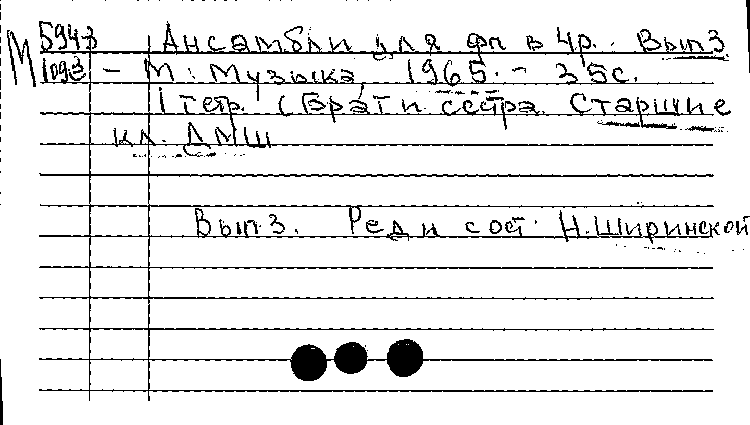 М 5943 Ансамбли для фп в 4р. Вып 3
1093 – М: Музыка, 1965. – 35с.
1 тетр. (Брат и сестра. Старшие
кл. ДМШ
Вып 3. Ред и сост. Н. Ширинской